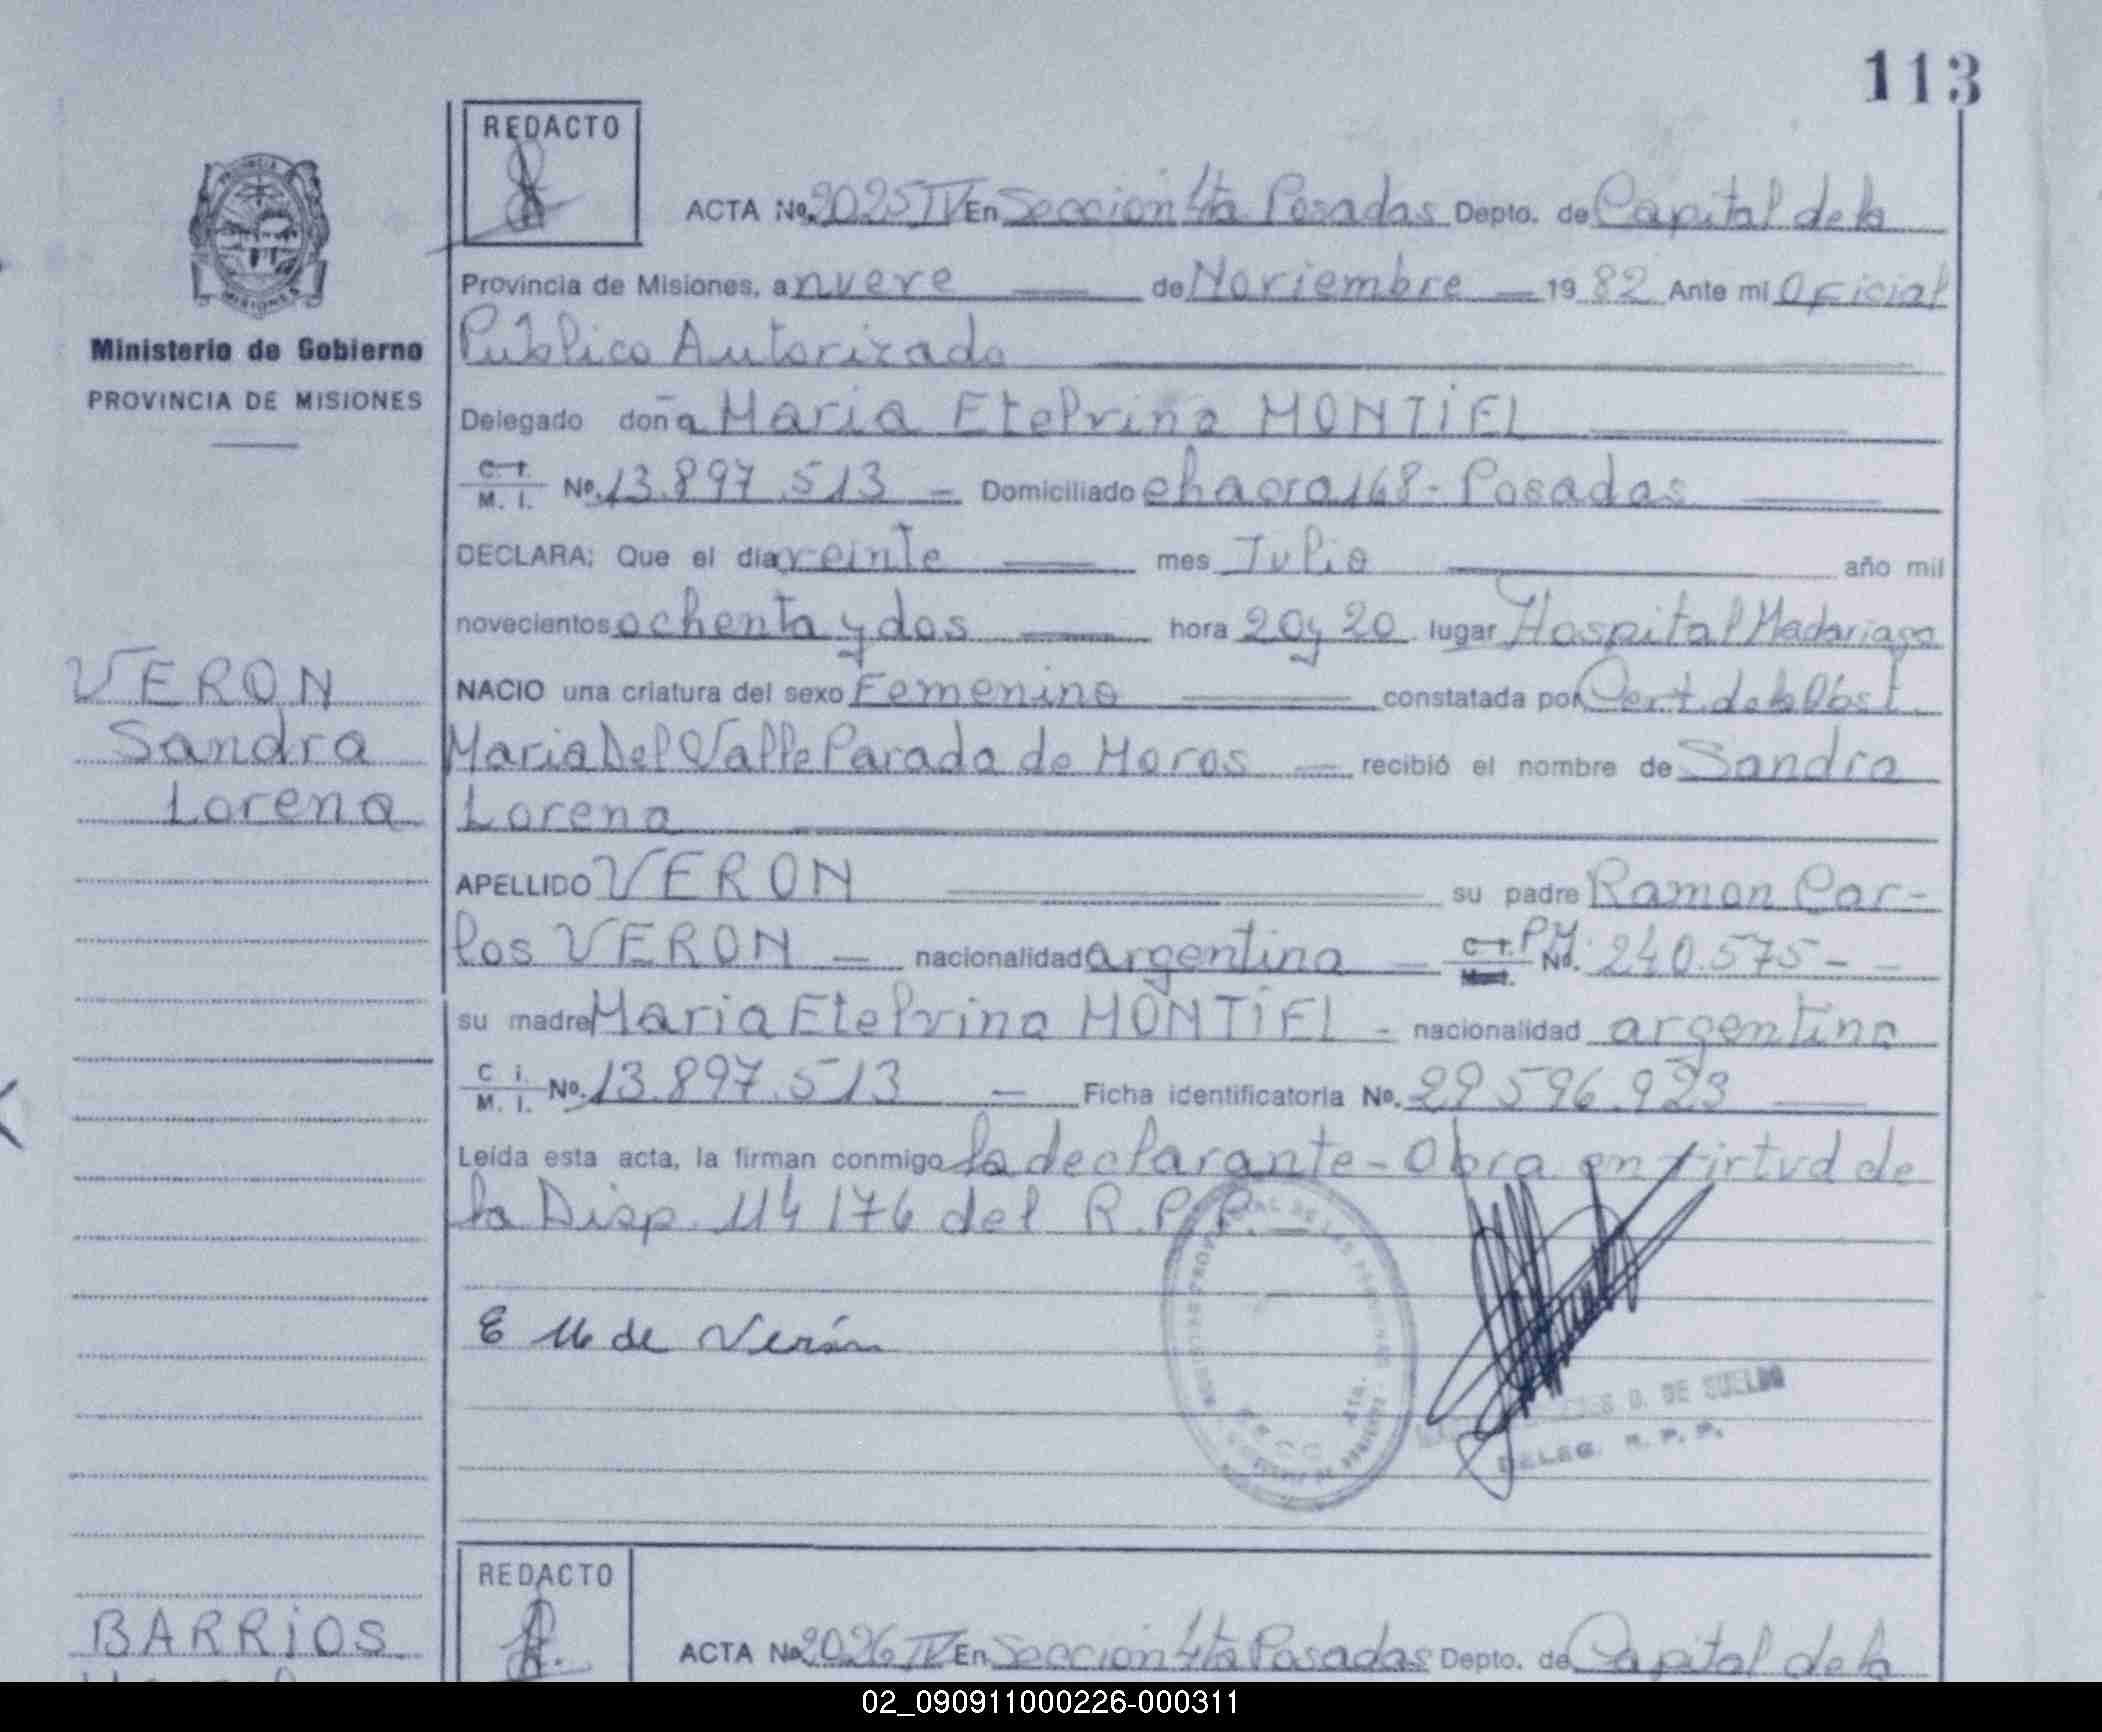 113
REDACTO
ACTA No. 2025 IV En Seccion 4ta Posadas Depto. de Capital de la
Provincia de Misiones, a nueve de Noviembre 1982 Ante mi Oficial
Público Autorizado
Delegado doña Maria Etelvina MONTIEL
C. I. M. I. No. 13.897.513 - Domiciliado chacra 168 - Posadas
DECLARA; Que el día veinte mes Julio año mil
novecientos ochenta y dos hora 20 y 20 lugar Hospital Madariaga
NACIO una criatura del sexo Femenino constatada por Cert. de la Obst.
Maria Del Valle Parada de Moros recibió el nombre de Sandra
Lorena
APELLIDO VERON su padre Ramon Car-
los VERON nacionalidad argentina C. I. P.M. No. 240.575 - -
su madre Maria Etelvina MONTIEL - nacionalidad argentina
C. I. M. I. No. 13.897.513 - Ficha identificatoria No. 29.596.923
Leída esta acta, la firman conmigo la declarante - Obra en virtud de
la Disp. 114/76 del R.P.P.
E M de Verón
D. DE SUELDO
DELEG. R. P. P.
Ministerio de Gobierno
PROVINCIA DE MISIONES
VERON
Sandra
Lorena
REDACTO
BARRIOS
ACTA No. 2026 IV En Seccion 4ta Posadas Depto. de Capital de la
02_090911000226-000311